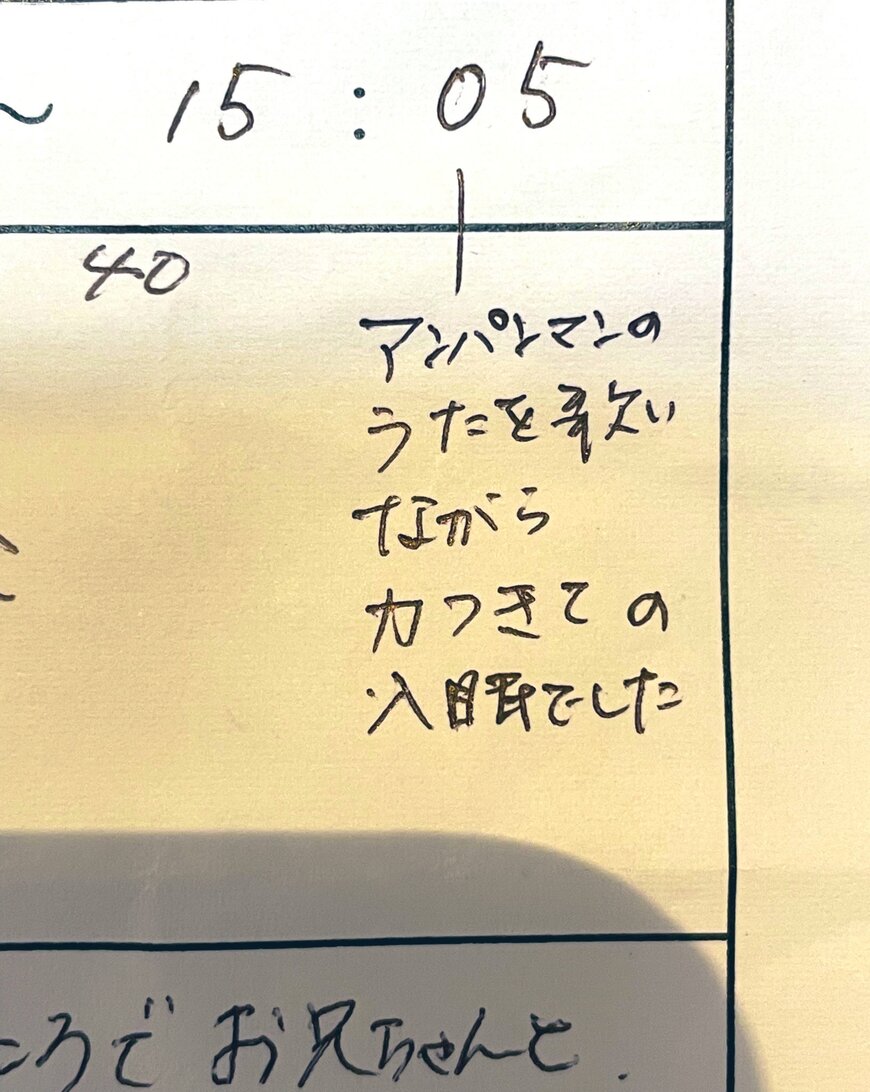 ～ 15 : 05
40
アンパンマンの
うたを歌い
ながら
力つきての
入眠でした
ころでお兄ちゃんと